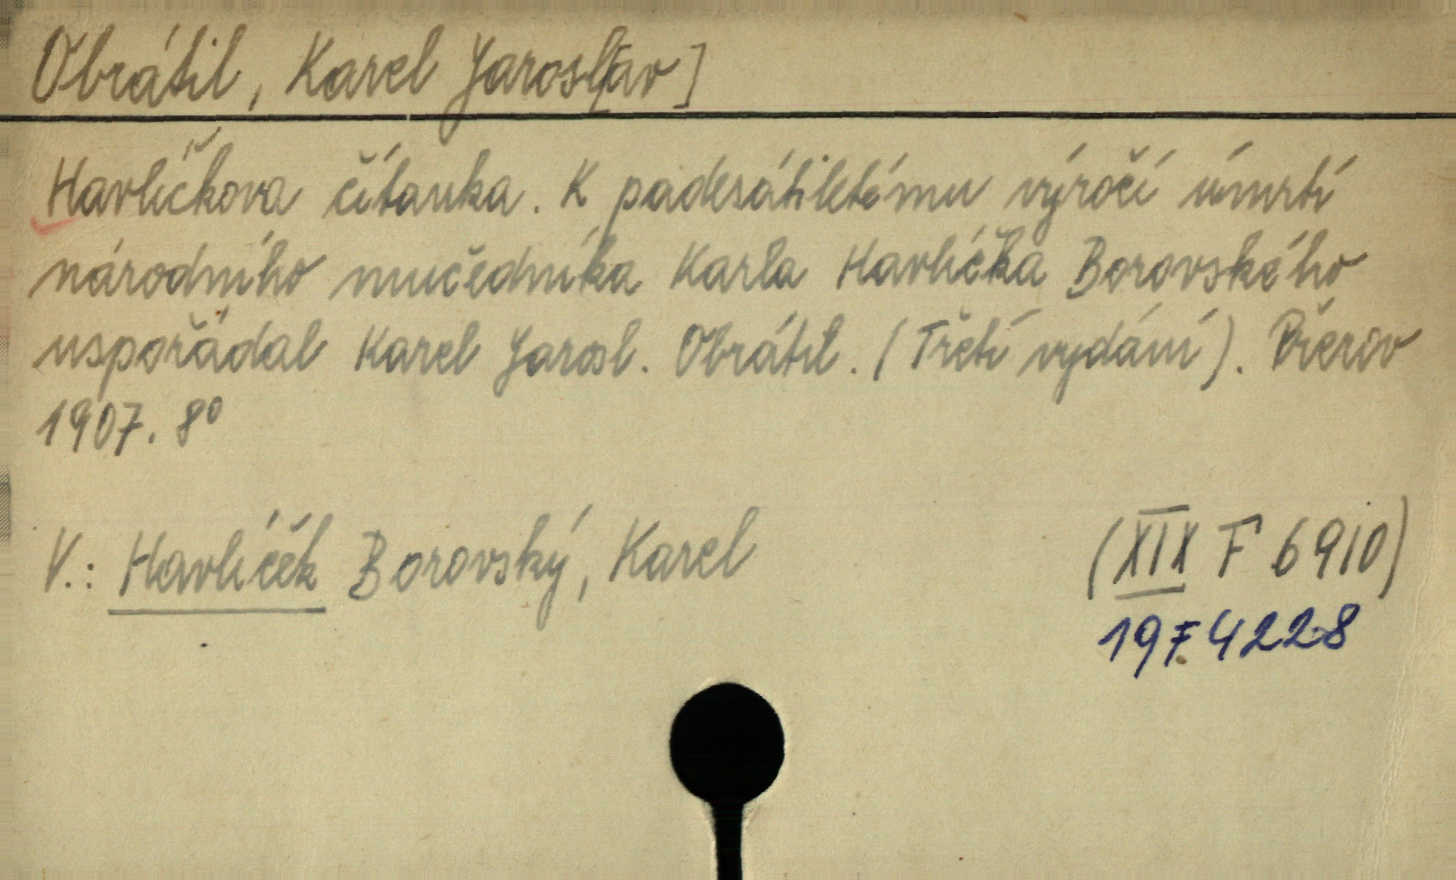 Obrátil, Karel Jarosl[av]
Havlíčkova čítanka. K padesátiletému výročí úmrtí
národního mučedníka Karla Havlíčka Borovského
uspořádal Karel Jarosl. Obrátil. (Třetí vydání). Přerov
1907. 8°
V.: Havlíček Borovský, Karel
(XIX F 6910)
19F4228